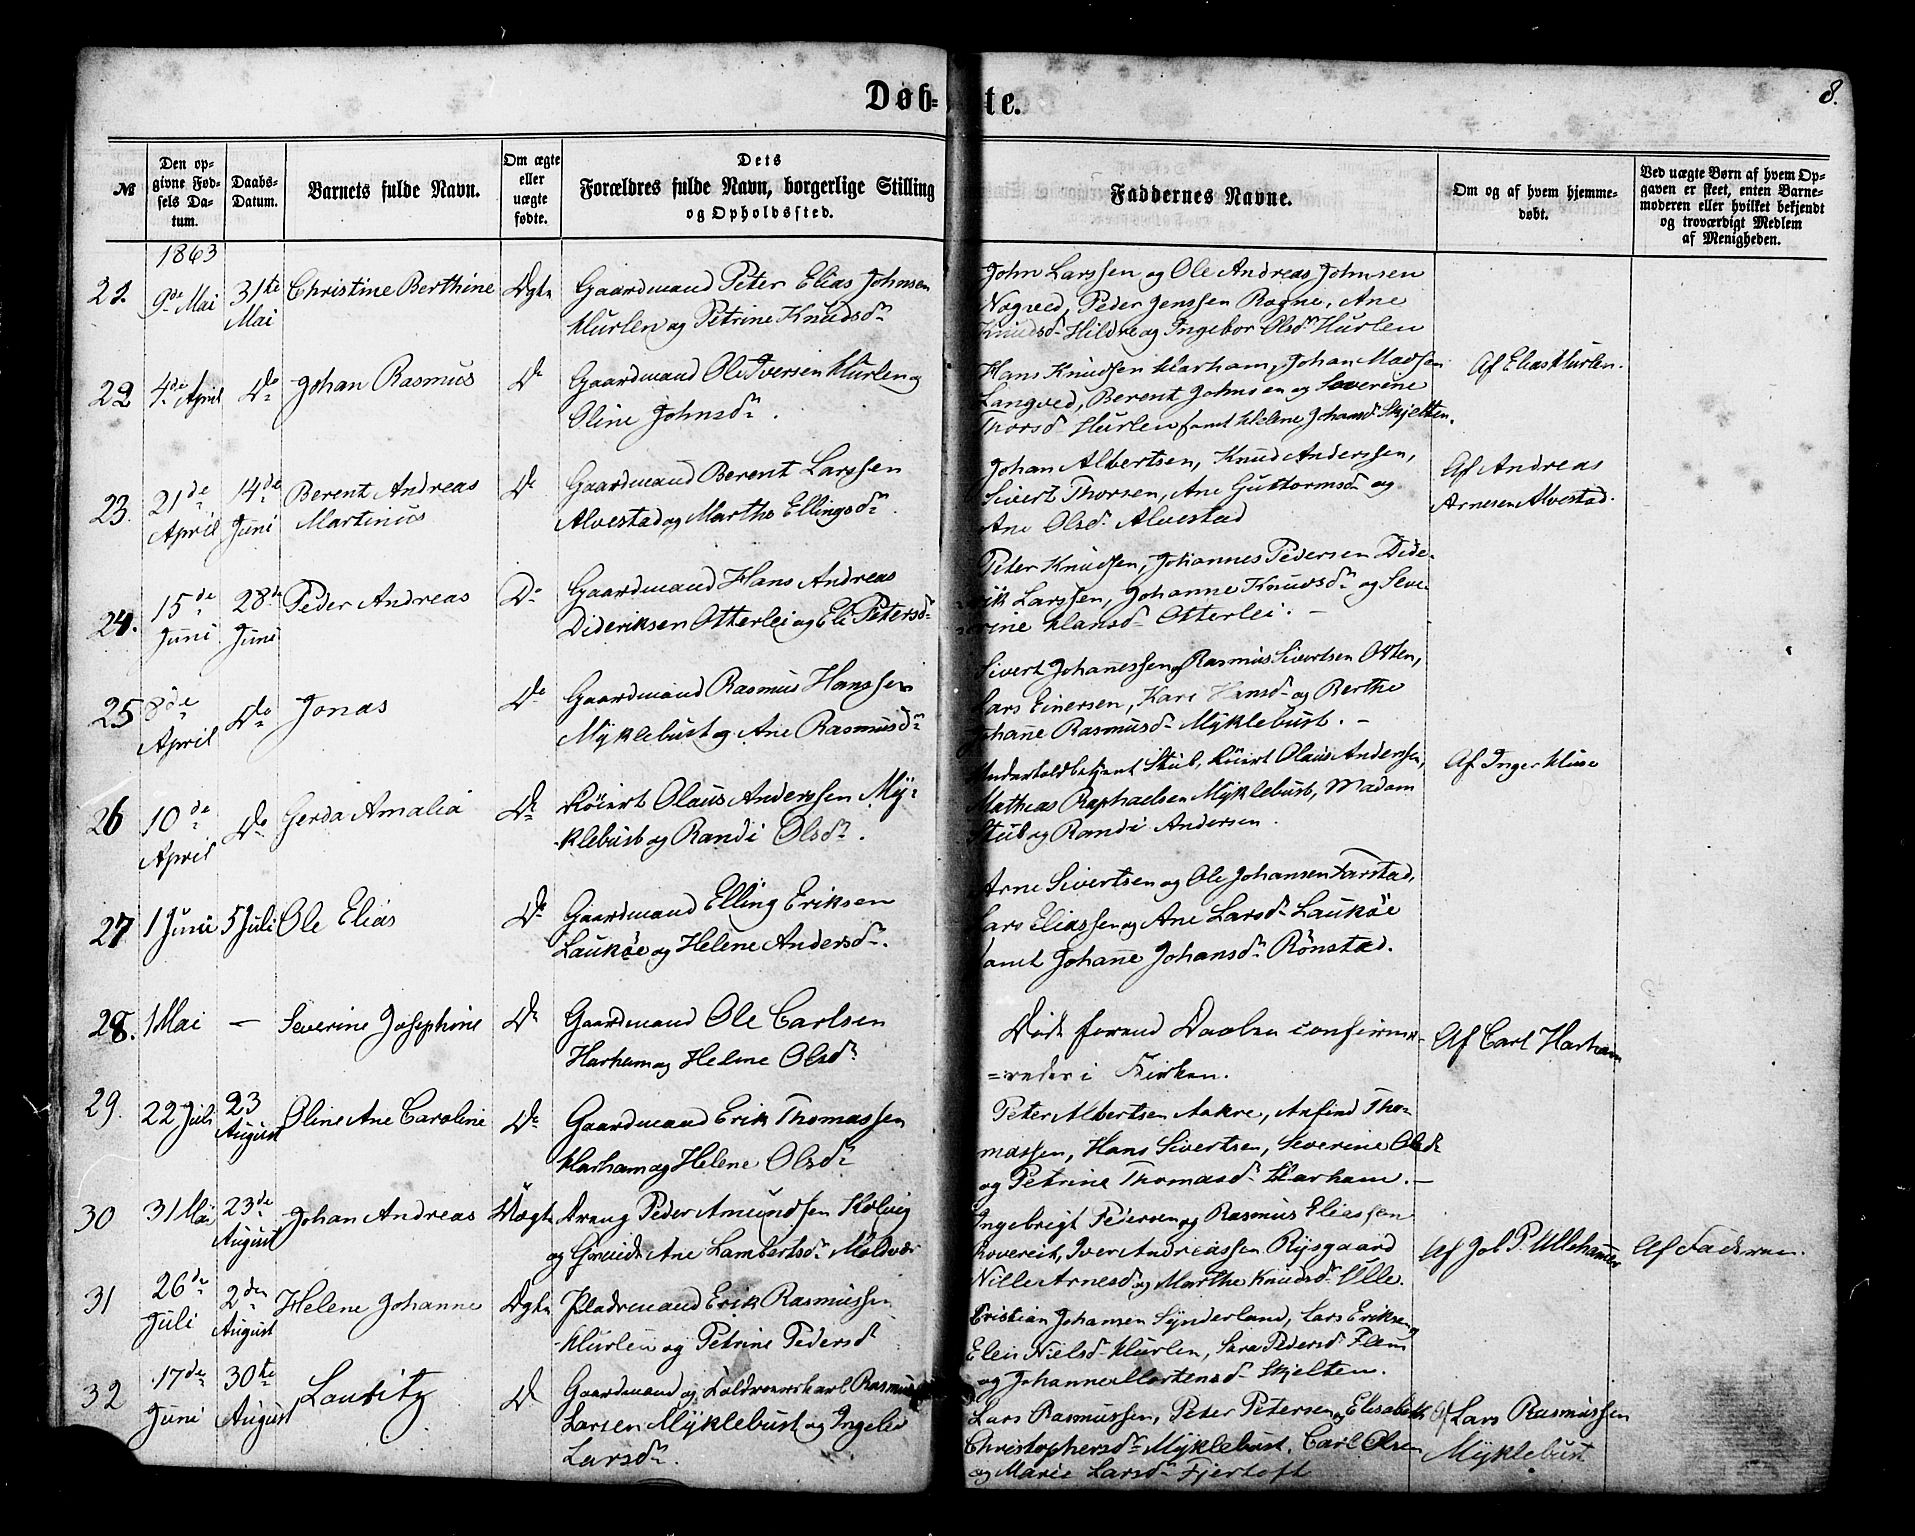 Døb-te.
8.
№
Den opgivne Fødsels Datum.
Daabs-Datum.
Barnets fulde Navn.
Om ægte eller uægte fødte.
Dets Forældres fulde Navn, borgerlige Stilling og Opholdssted.
Faddernes Navne.
Om og af hvem hjemmedøbt.
Ved uægte Børn af hvem Opgaven er skeet, enten Barnemoderen eller hvilket bekjendt og troværdigt Medlem af Menigheden.
1863
21. 9de Mai 31te Mai Christine Berthine Dgtn
Gaardmand Peter Elias Johnsen
Hurlen og Petrine Knudsdr
John Larssen og Ole Andreas Johnsen
Nogved, Peder Jenssen Rogne, Ane
Knudsdr Hildre og Ingebor Olsdr Hurlen
22 4de April Do Johan Rasmus Do
Gaardmand Ole Iversen Hurlen og
Oline Johnsdr.
Hans Knudsen Harham, Johan Madsen
Langved, Berent Johnsen og Severine
Thorsd Hurlen samt Helene Johansd Skjelten.
Af Elias Hurlen.
23. 21de April 14de Juni Berent Andreas
Martinus Do
Gaardmand Berent Larssen
Alvestad og Marthe Ellingsdr.
Johan Albertsen, Knud Anderssen,
Sivert Thorsen, Ane Guttormsdr og
Ane Olsdr Alvestad
Af Andreas
Arnesen Alvestad.
24. 15de Juni 28de Juni Peder Andreas Do
Gaardmand Hans Andreas
Dideriksen Otterlei og Eli Petersdr
Peter Knudsen, Johannes Pedersen Dide-
rik Larssen, Johanne Knudsdr og Seve-
rine Hansdr Otterlei. —
25 8de April Do Jonas Do
Gaardmand Rasmus Hanssen
Myklebust og Ane Rasmusdr
Sivert Johanessen og Rasmus Sivertsen Often,
Lars Einersen, Kari Hansdr og Berthe
Johane Rasmusdr Myklebust. —
26 10de April Do Gerda Amalia Do
Olaus Anderssen My-
klebust og Randi Olsdr.
Stub, Olaus Anderssen,
Mathias Raphaelsen Myklebust, Madam
Stub og Randi Andersen.
Af Inger
27 1 Juni 5 Juli Ole Elias Do
Gaardmand Elling Eriksen
Laukøe og Helene Andersdr.
Arne Sivertsen og Ole Johansen Farstad,
Lars Eliassen og Ane Larsdr Laukøe
samt Johane Johansdr Rønstad.
28. 1 Mai — Severine Josephine Do
Gaardmand Ole Carlsen
Harham og Helene Olsdr
Død forend Daaben confirme-
=redes i Kirken.
Af Carl Harham
29. 22 Juli 23 August Oline Ane Caroline Do
Gaardmand Erik Thomassen
Harham og Helene Olsdr
Peter Albertsen Aakre, Anfind Tho-
massen, Hans Sivertsen, Severine Olsdr
og Petrine Thomasdr Harham. —
30 31 Mai 23de August Johan Andreas Uægte
Dreng Peder Amundsen Kolvig
og Ane Lambertsdr
Ingebrigt Pedersen og Rasmus Eliassen
Iver Andreassen Rysgaard
Nille Arnesdr og Marthe Knudsdr Ulle.
Af Faderen.
31 26de Juli 2den August Helene Johanne Dgtn
Pladsmand Erik Rasmussen
Hurlen og Petrine Pedersdr
Cristian Johansen Synderland, Lars Eriksen,
Elen Nielsdr Hurlen, Sara Pedersdr Flem
og Johanne Mortensdr Skjelten.
32 17de Juni 30te August Lauritz Do
Gaardmand og Rasmus
Larsen Myklebust og Ingeb
Larsdr.
Lars Rasmussen, Peter Petersen, Elisabeth
Christophersdr Myklebust, Carl Olsen
og Marie Larsdr Fjertoft
Af Lars Rasmussen
Myklebust